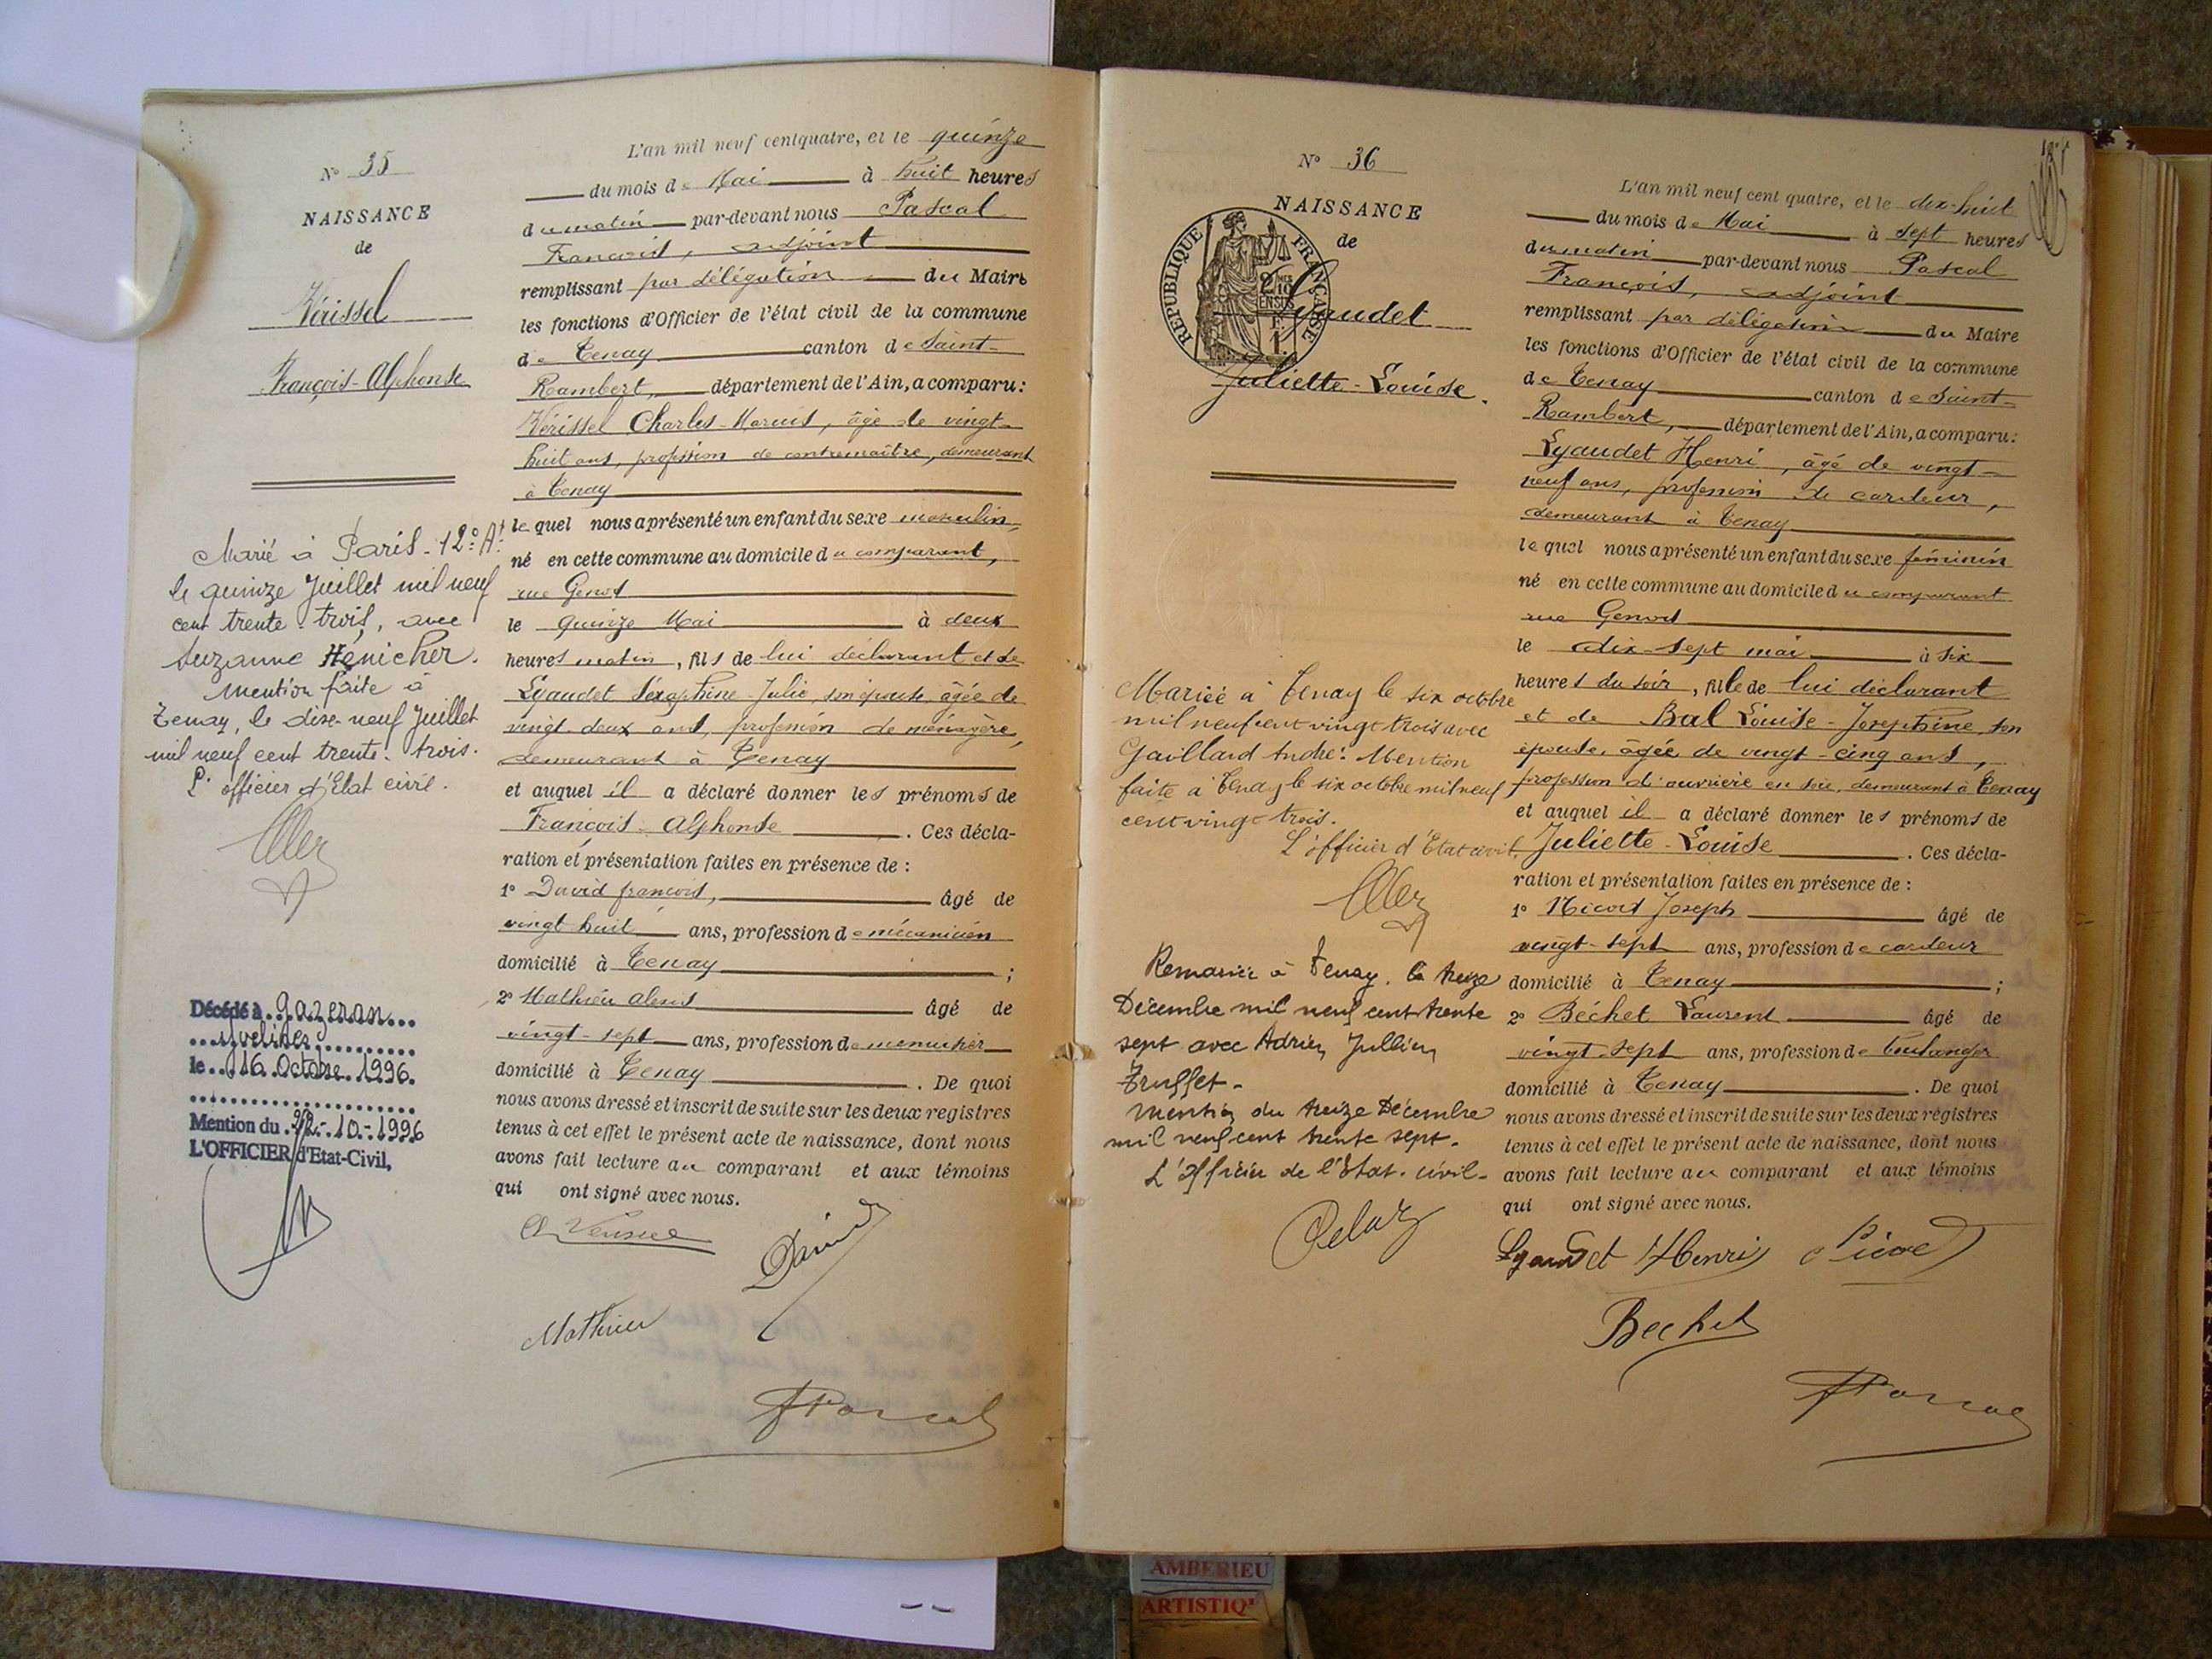 N° 35
NAISSANCE
de
Vérissel
François-Alphonse
Marié à Paris-12e At
le quinze Juillet mil neuf
cent trente-trois, avec
Suzanne Hénicher.
Mention faite à
Tenay, le dix-neuf Juillet
mil neuf cent trente-trois.
L'officier d'Etat civil.
Décédé à Gazeran
Yvelines
le 16 Octobre 1996.
Mention du 22-10-1996
L'OFFICIER d'Etat-Civil,
L'an mil neuf cent quatre, et le quinze
du mois de Mai à huit heures
du matin par-devant nous Pascal
François, adjoint
remplissant par délégation du Maire
les fonctions d'Officier de l'état civil de la commune
de Tenay canton de Saint-
Rambert, département de l'Ain, a comparu:
Vérissel Charles-Marius, âgé de vingt-
huit ans, profession de contremaître, demeurant
à Tenay
lequel nous a présenté un enfant du sexe masculin,
né en cette commune au domicile du comparant,
rue Genod
le quinze Mai à deux
heures matin, fils de lui déclarant et de
Lyaudet Séraphine-Julie, son épouse, âgée de
vingt-deux ans, profession de ménagère,
demeurant à Tenay
et auquel il a déclaré donner les prénoms de
François-Alphonse. Ces décla-
ration et présentation faites en présence de :
1° David françois, âgé de
vingt huit ans, profession de mécanicien
domicilié à Tenay ;
2° Mathieu alexis âgé de
vingt-sept ans, profession de menuisier
domicilié à Tenay. De quoi
nous avons dressé et inscrit de suite sur les deux registres
tenus à cet effet le présent acte de naissance, dont nous
avons fait lecture au comparant et aux témoins
qui ont signé avec nous.
Ch Verissel David
Mathieu
Pascal
N° 36
NAISSANCE
de
REPUBLIQUE FRANÇAISE
Lyaudet
Juliette-Louise.
Mariée à Tenay le six octobre
mil neuf cent vingt trois avec
Gaillard André. Mention
faite à Tenay le six octobre mil neuf
cent vingt trois.
L'officier d'Etat civil,
Remariée à Tenay, le treize
Décembre mil neuf cent trente
sept avec Adrien Jullien
Truffet-
Mention du treize Décembre
mil neuf cent trente sept-
L'officier de l'Etat-civil-
Delaz
L'an mil neuf cent quatre, et le dix-huit
du mois de Mai à sept heures
du matin par-devant nous Pascal
François, adjoint
remplissant par délégation du Maire
les fonctions d'Officier de l'état civil de la commune
de Tenay canton de Saint-
Rambert, département de l'Ain, a comparu:
Lyaudet Henri, âgé de vingt-
neuf ans, profession de cardeur,
demeurant à Tenay
lequel nous a présenté un enfant du sexe féminin
né en cette commune au domicile du comparant
rue Genod
le dix-sept mai à six
heures du soir, fille de lui déclarant
et de Bal Louise-Joséphine, son
épouse, âgée de vingt-cinq ans,
profession d'ouvrière en soie, demeurant à Tenay
et auquel il a déclaré donner les prénoms de
Juliette-Louise. Ces décla-
ration et présentation faites en présence de :
1° Nicod Joseph âgé de
vingt-sept ans, profession de cardeur
domicilié à Tenay ;
2° Béchet Laurent âgé de
vingt-sept ans, profession de boulanger
domicilié à Tenay. De quoi
nous avons dressé et inscrit de suite sur les deux registres
tenus à cet effet le présent acte de naissance, dont nous
avons fait lecture au comparant et aux témoins
qui ont signé avec nous.
Lyaudet Henri
Bechet
Pascal
AMBERIEU
ARTISTIQ